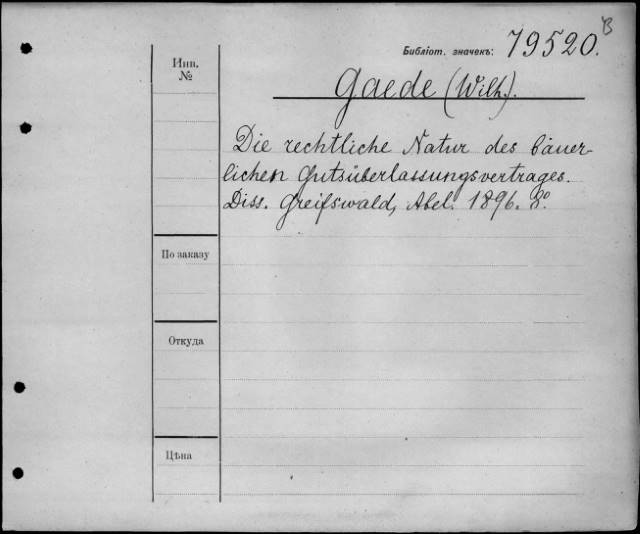 B
Библіот. значекъ: 79520.
Инв.
№
Gaede (Wilh).
Die rechtliche Natur des bäuer-
lichen Gutsüberlassungsvertrages.
Diss. Greifswald, Abel. 1896. 8º.
По заказу
Откуда
Цѣна